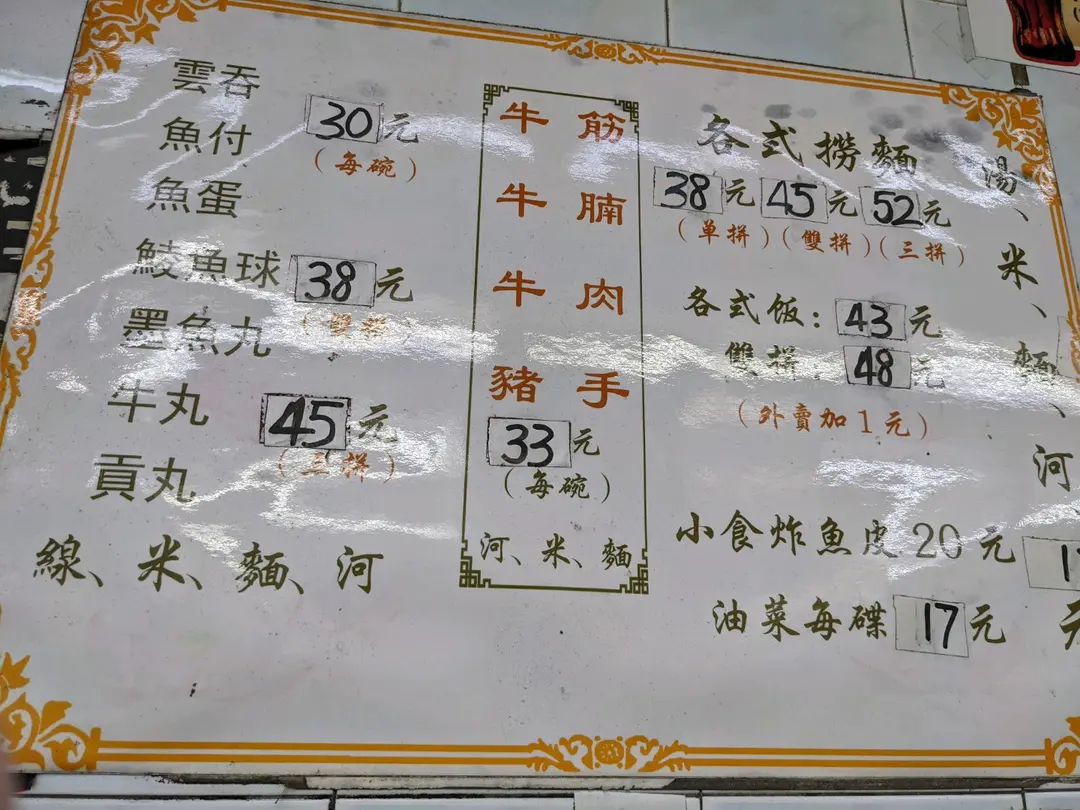 雲吞
魚付
30元
(每碗)
魚蛋
鯪魚球
38元
(雙拼)
墨魚丸
牛丸
45元
(三拼)
貢丸
線、米、麵、河
牛筋
牛腩
牛肉
豬手
33元
(每碗)
河、米、麵
各式撈麵
38元 45元 52元
(单拼)(雙拼)(三拼)
各式饭:43元
雙拼:48元
(外賣加1元)
小食炸魚皮20元
油菜每碟17元
湯、米、麵、河
元